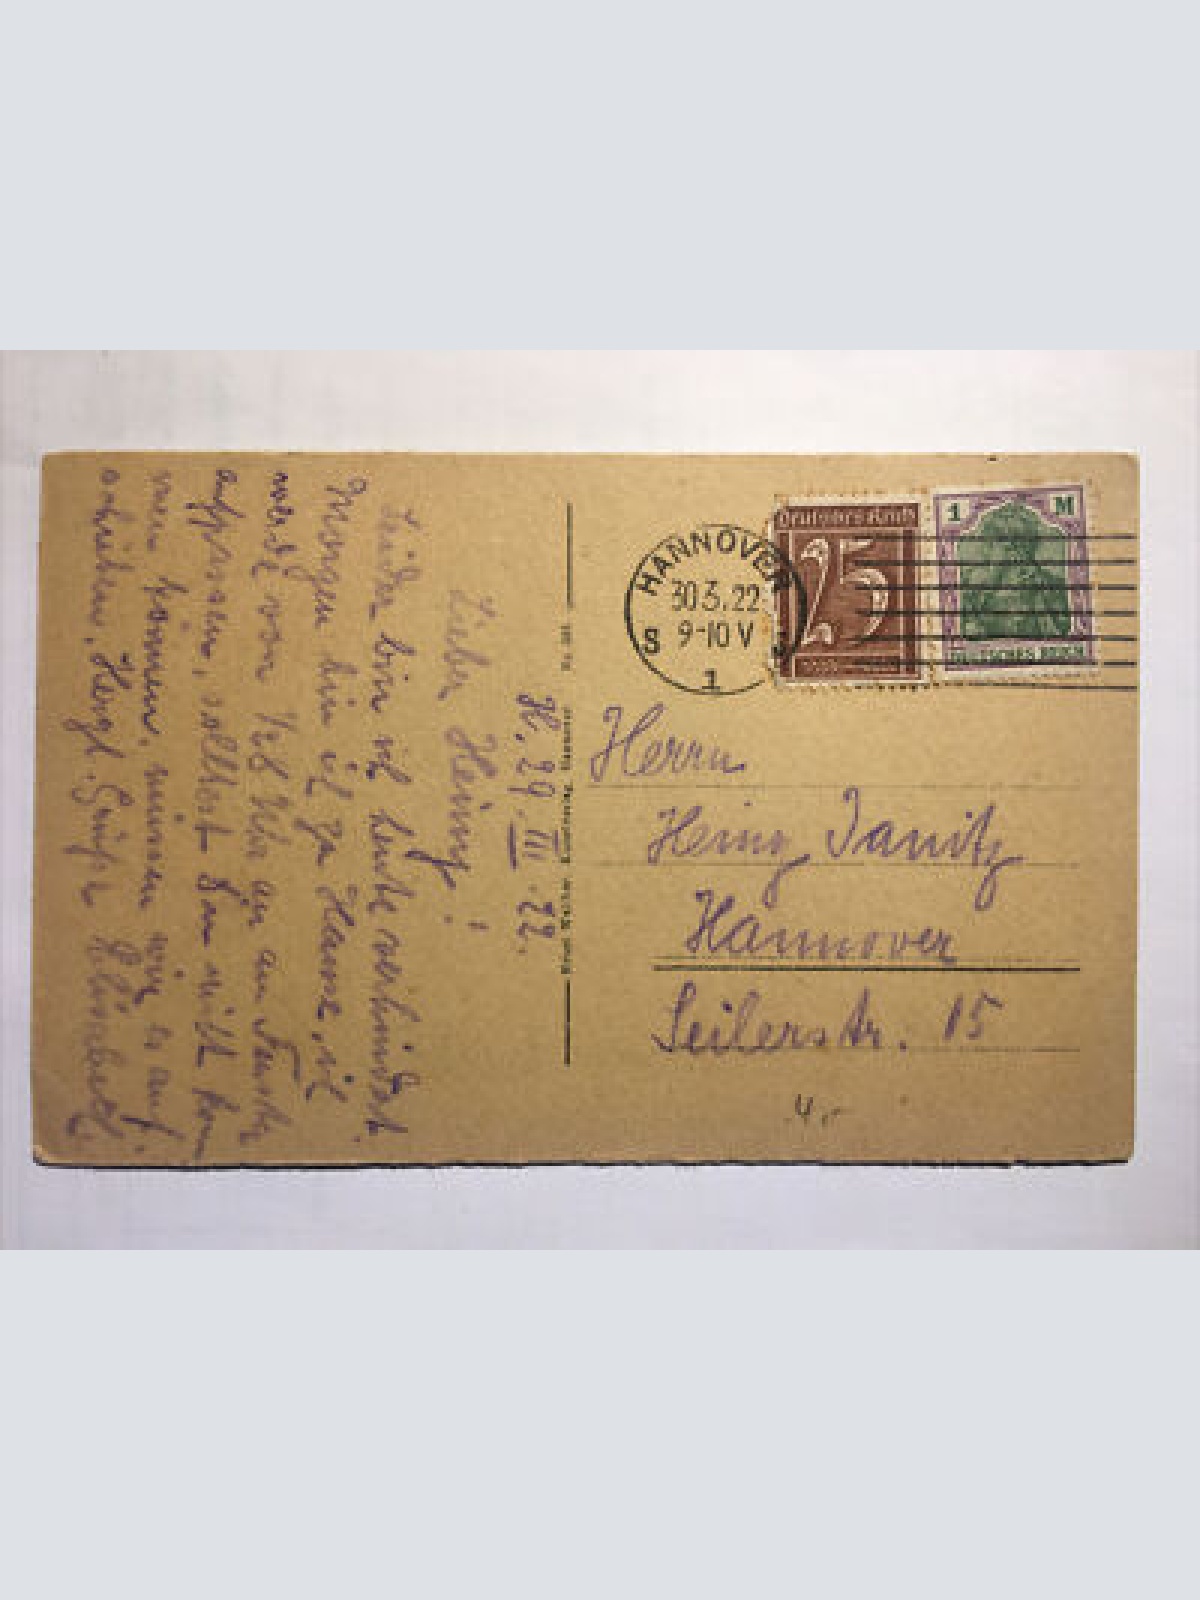 H. 29. III. 22.
Lieber Heinz!
Leider bin ich heute verhindert.
Morgen bin ich zu Hause, ich
werde von 1/2 8 Uhr an am Fenster
aufpassen, solltest Du nicht kom
men können, müssen wir es auf
schieben. Herzl. Grüße
Herrn
Heinz Janitz
Hannover
Seilerstr. 15
4.-
HANNOVER
30.3.22
9-10 V
S 1 S
Deutsches Reich
25
1 M
DEUTSCHES REICH
Hannover